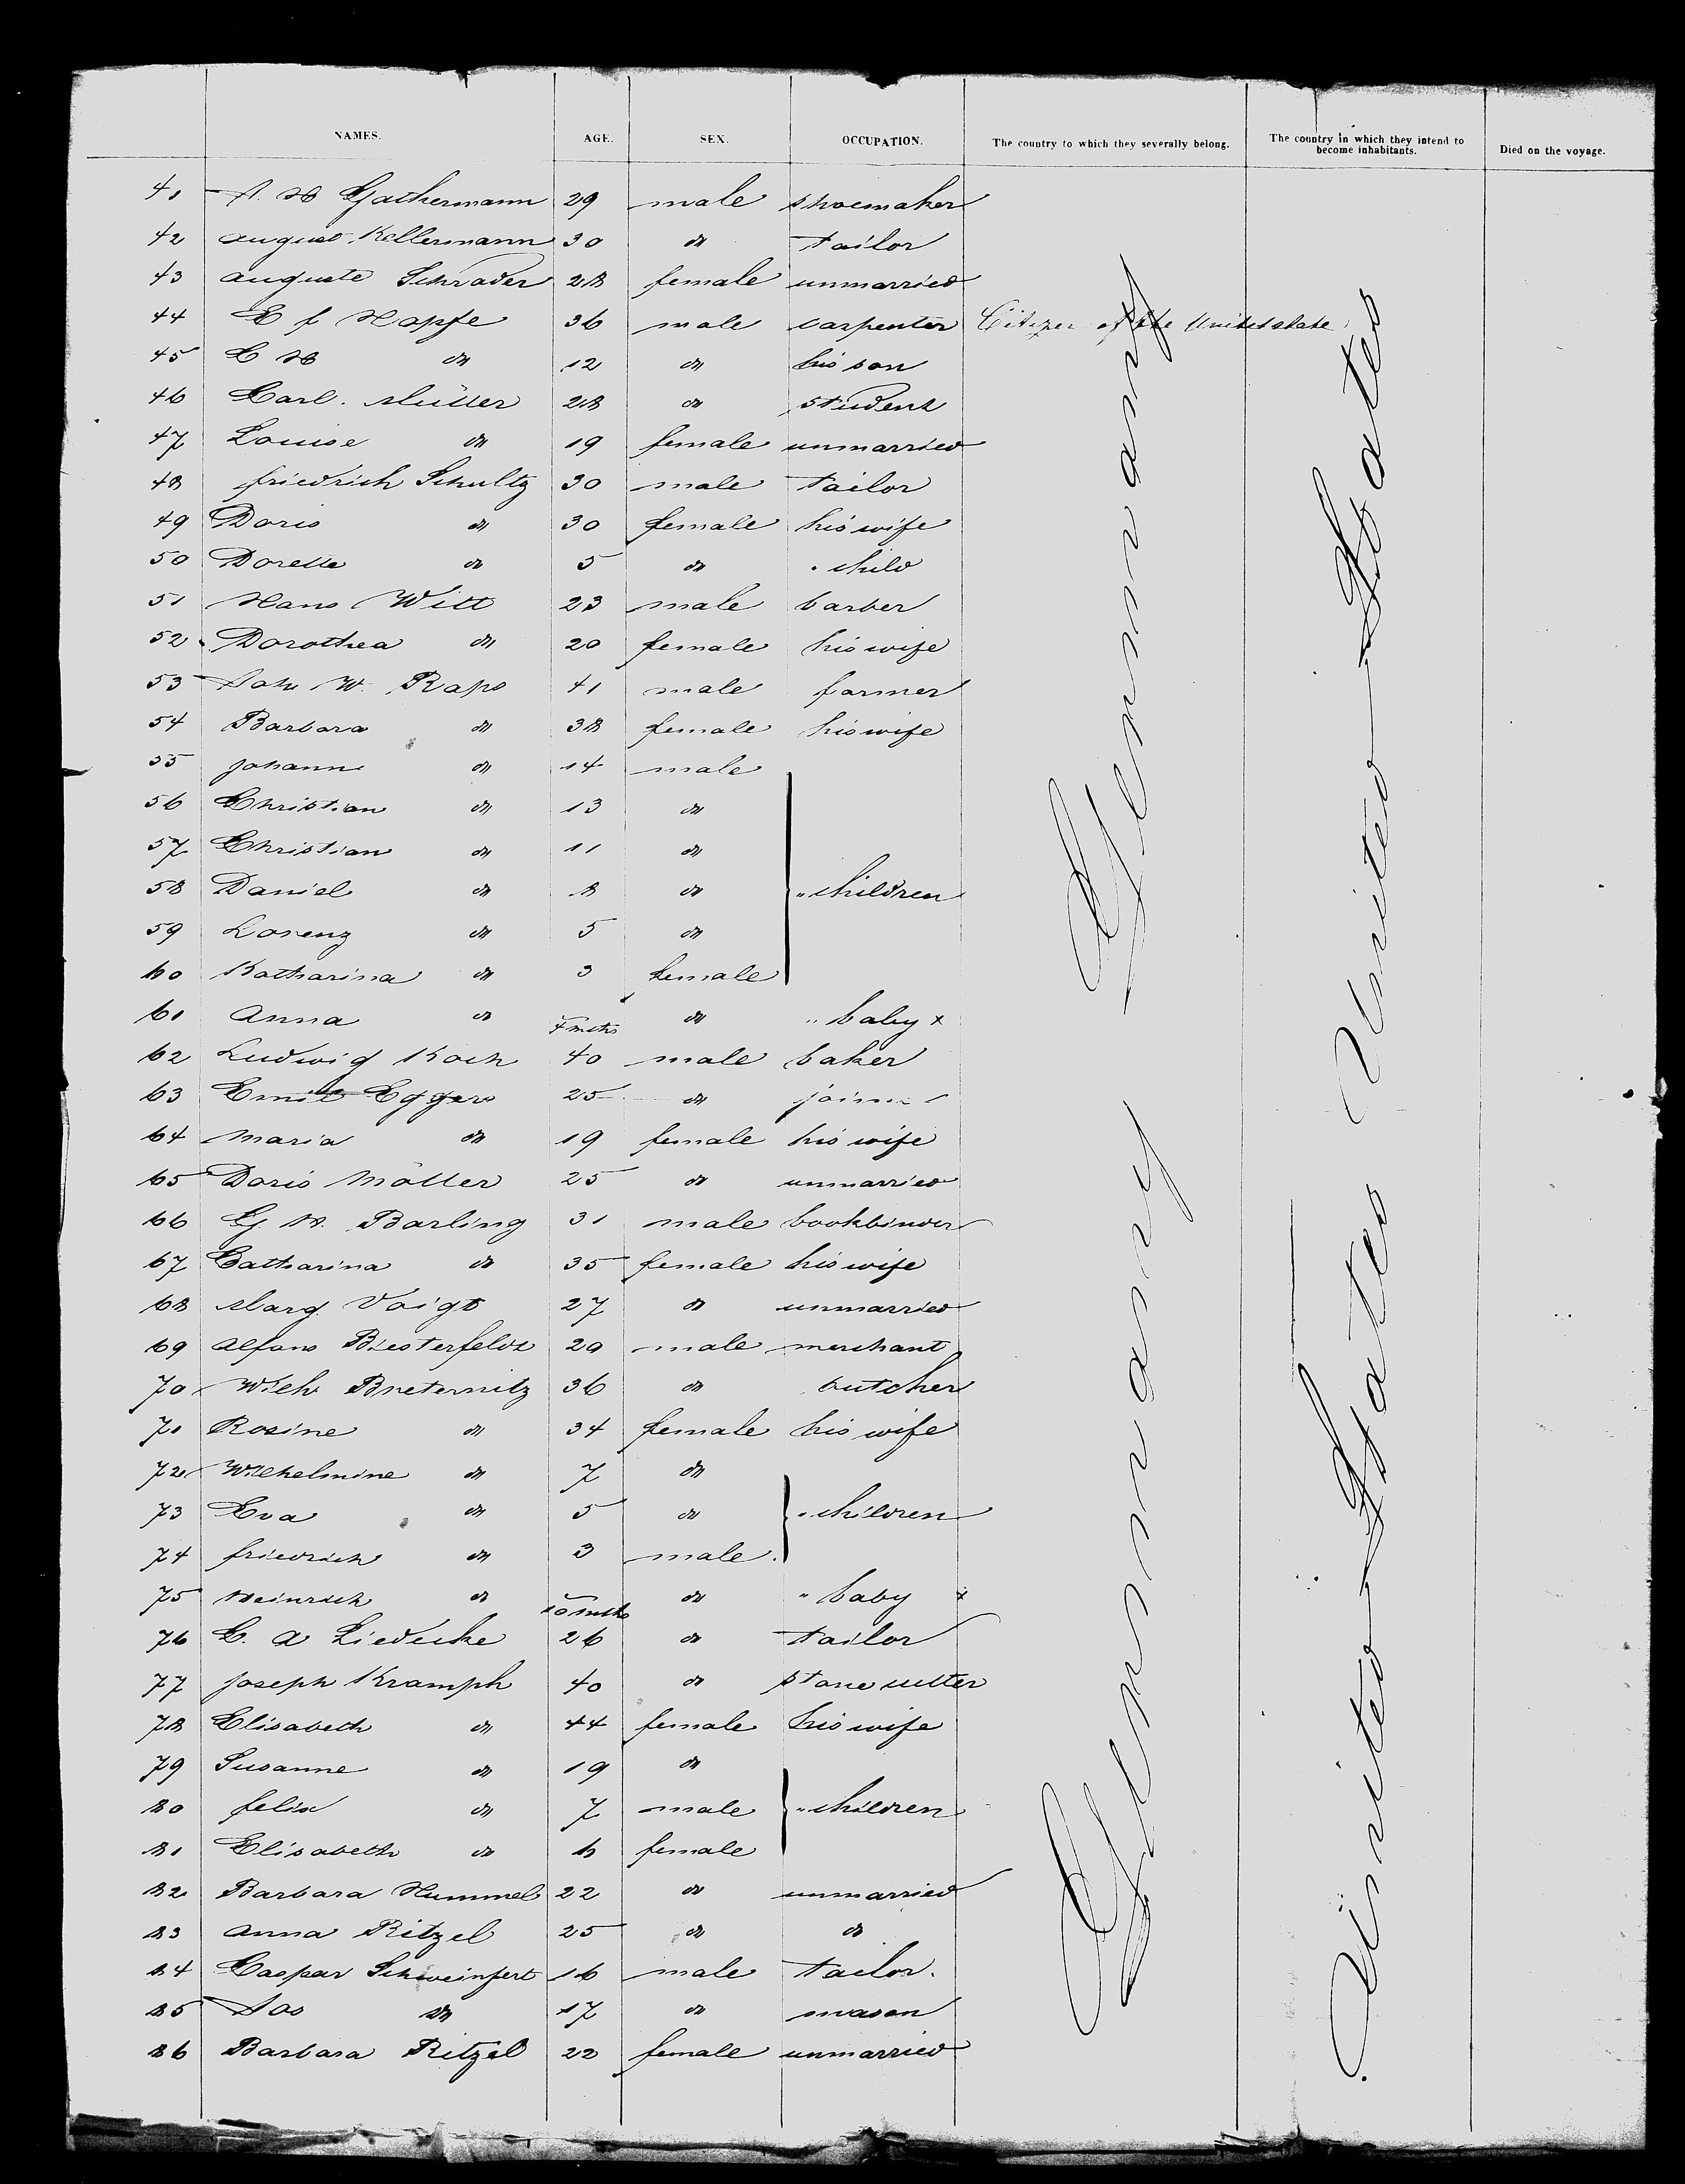 NAMES. AGE. SEX. OCCUPATION. The country to which they severally belong. The country in which they intend to become inhabitants. Died on the voyage.
41 A. H Gathermann 29 male shoemaker
42 august Kellermann 30 do tailor
43 auguste Schrader 28 female unmarried
44 C f Hopfe 36 male carpenter Citizen of the Unitedstate
45 C H do 12 do his son
46 Carl. Müller 28 do student
47 Louise do 19 female unmarried
48 friedrich Schultz 30 male tailor
49 Doris do 30 female his wife
50 Dorette do 5 do " child
51 Hans Witt 23 male barber
52 Dorothea do 20 female his wife
53 Joh W. Raps 41 male farmer
54 Barbara do 38 female his wife
55 johann do 14 male
56 Christian do 13 do
57 Christian do 11 do
58 Daniel do 8 do " children
59 Lorenz do 5 do
60 Katharina do 3 female
61 Anna do mths do " baby +
62 Ludwig Koch 40 male baker
63 Emil Eggers 25 do joiner
64 Maria do 19 female his wife
65 Doris Möller 25 do unmarried
66 G H. Barling 31 male bookbinder
67 Catharina do 35 female his wife
68 Marg. Voigt 27 do unmarried
69 Alfons Biesterfeldt 29 male merchant
70 Wilh Breternitz 36 do butcher
71 Rosine do 34 female his wife
72 Wilhelmine do 7 do
73 Eva do 5 do " children
74 friedrich do 3 male
75 Heinrich do 10 mths do " baby +
76 C. A Liedecke 26 do tailor
77 Joseph Kramph 40 do stone cutter
78 Elisabeth do 44 female his wife
79 Susanne do 19 do
80 felix do 7 male " children
81 Elisabeth do 6 female
82 Barbara Hummel 22 do unmarried
83 Anna Ritzel 25 do do
84 Caspar Schweinfert 16 male tailor.
85 Jos do 17 do mason
86 Barbara Ritzel 22 female unmarried
Germany
Germany
United States
United States